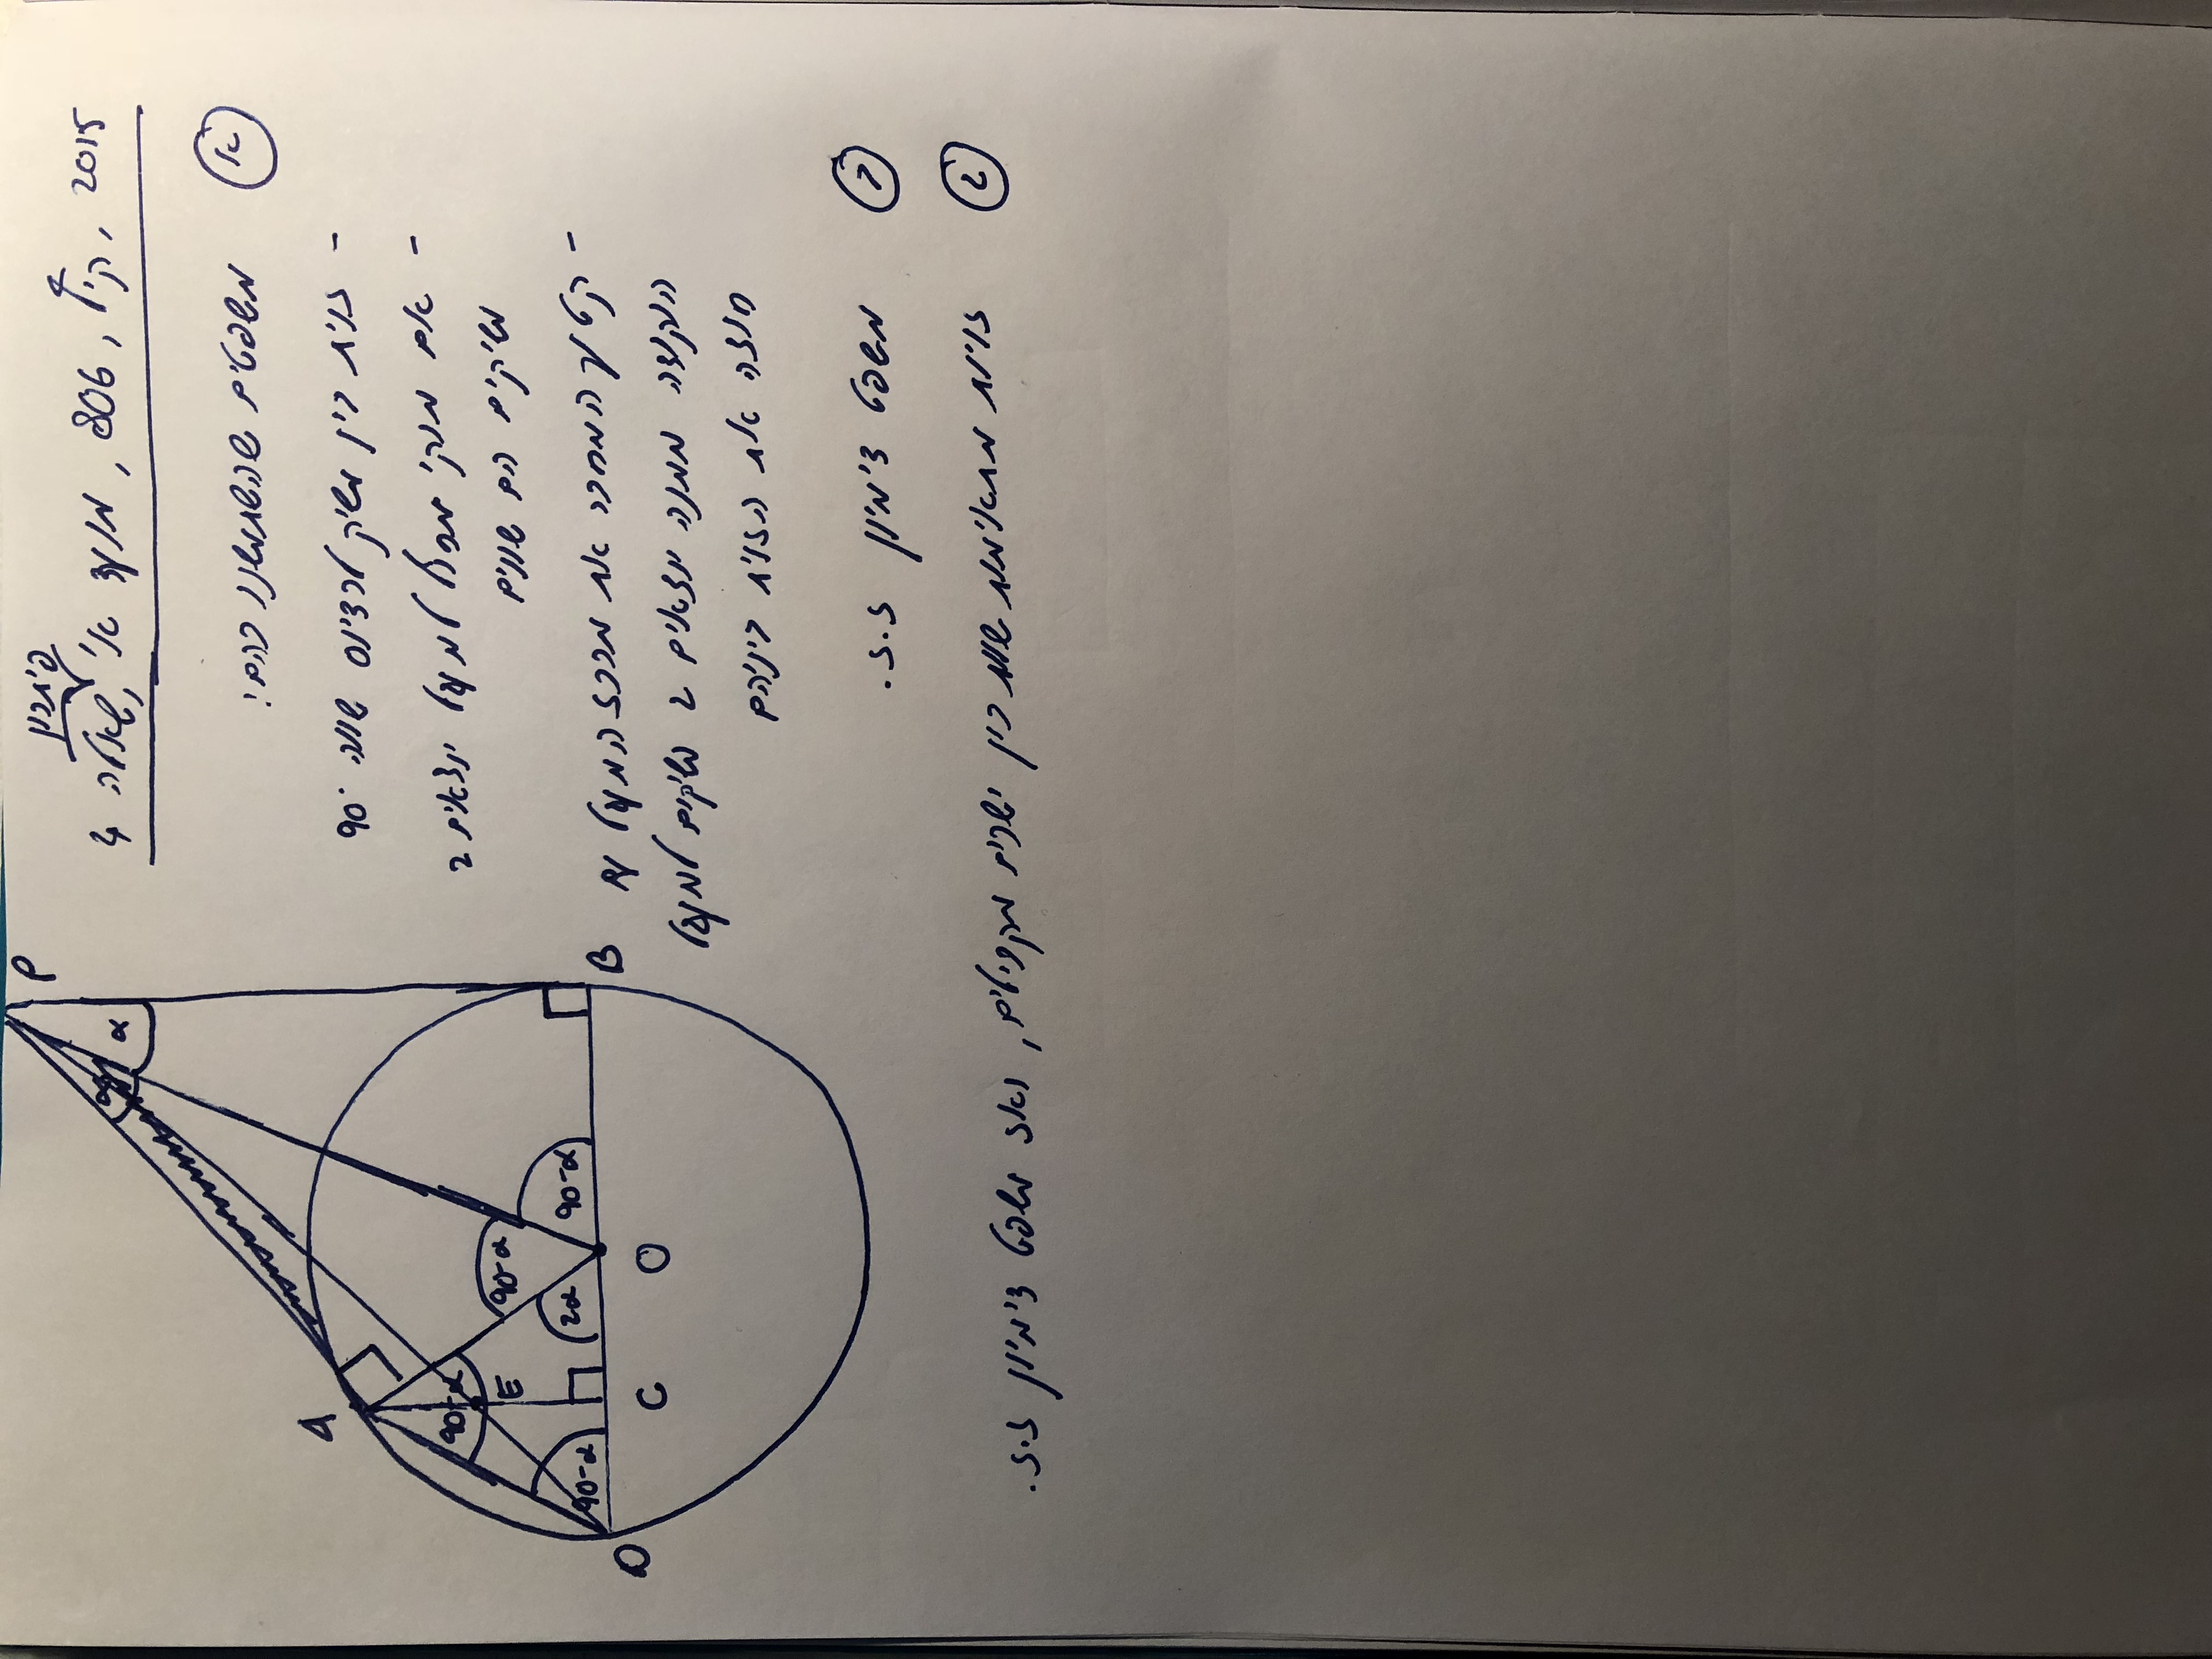 פיתרון
2015, קיץ, 806, מועד א', שאלה 4
א
משפטים שהשתמשנו בהם:
- זוית בין משיק לרדיוס שווה 90°
- אם מנק' מחול למעגל יוצאים 2
משיקים הם שווים
- קטע המחבר את מרכז המעגל עם
הנקודה ממנה יוצאים 2 משיקים למעגל
חוצה את הזוית ביניהם
ב
משפט דימיון ז.ז.
ג
זויות מתאימות שוות בין ישרים מקבילים, ואז משפט דימיון ז.ז.
P
α
α
A
90-α
E
90-α
90-α
2α
90-α
D
C
O
B